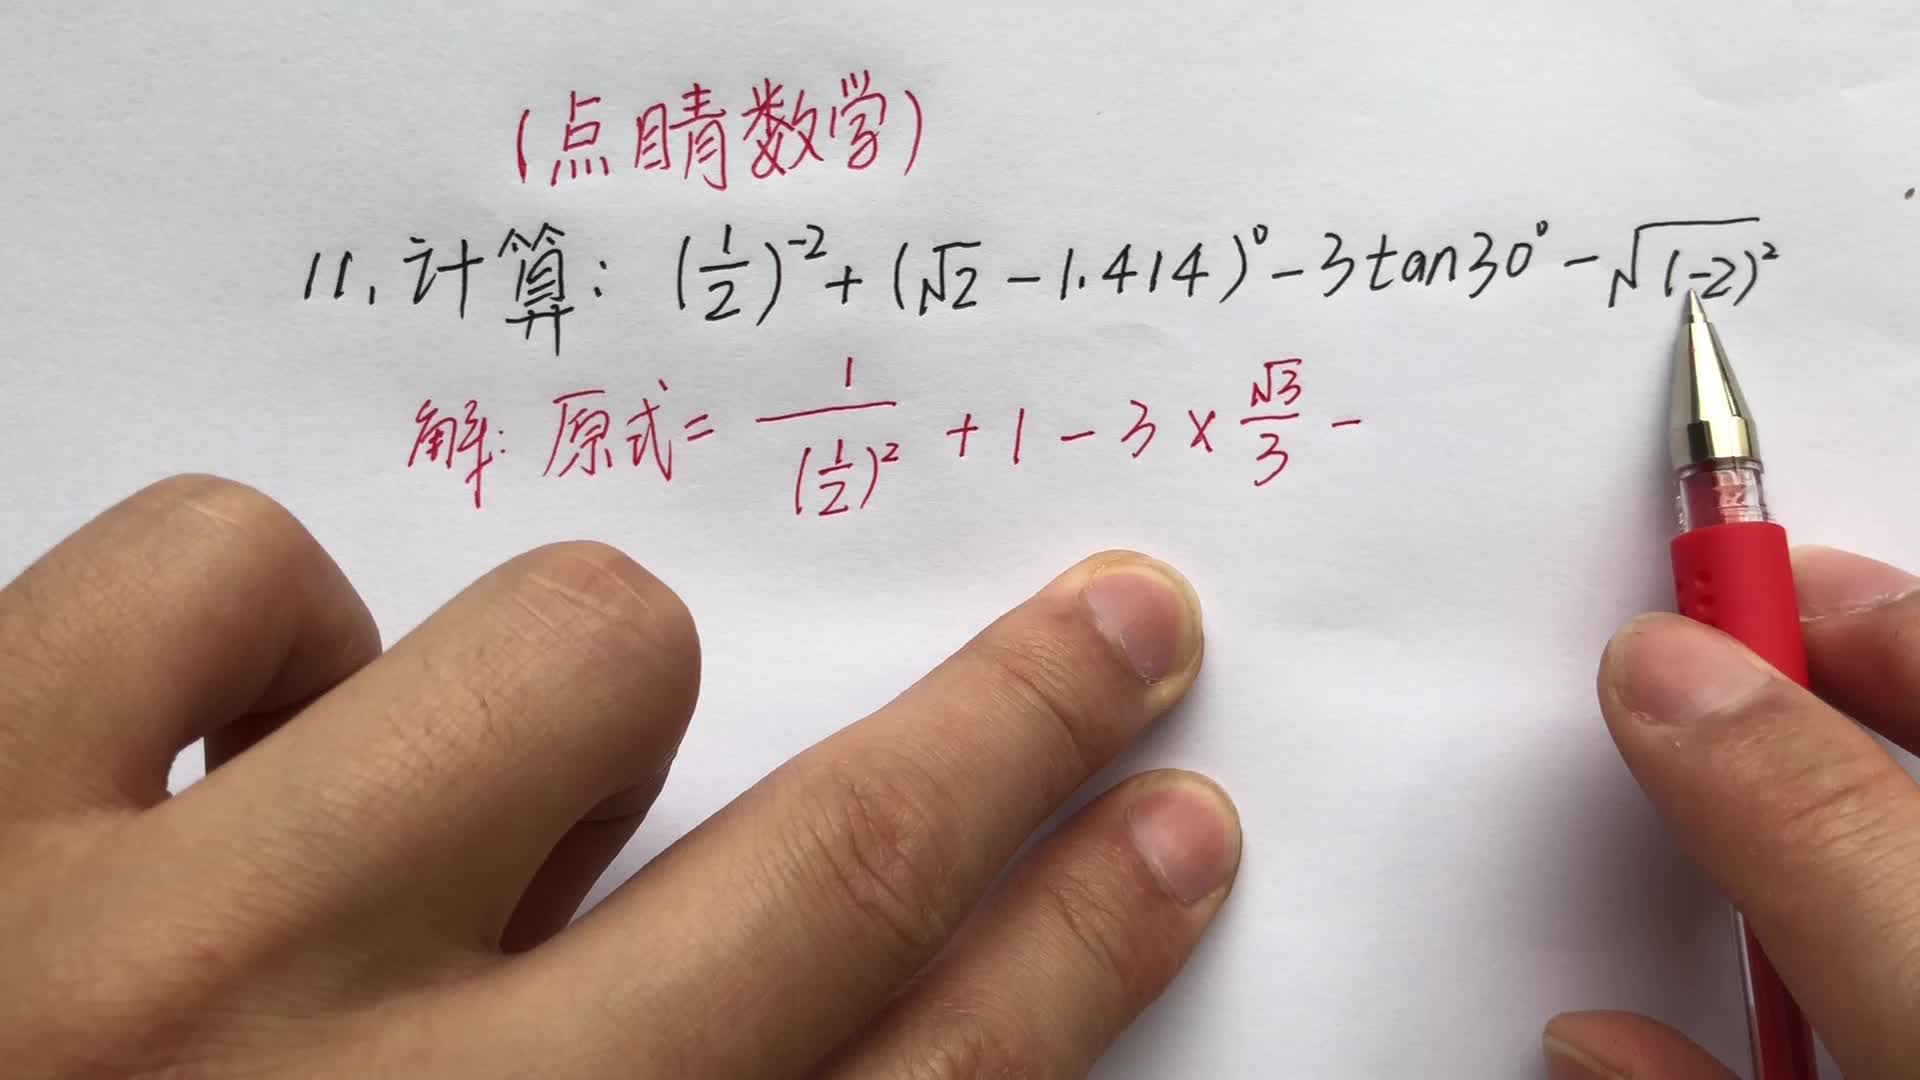 (点睛数学)
11.计算: (1/2)⁻² + (√2 - 1.414)⁰ - 3tan30° - √(-2)²
解: 原式 = 1/(1/2)² + 1 - 3 × √3/3 -